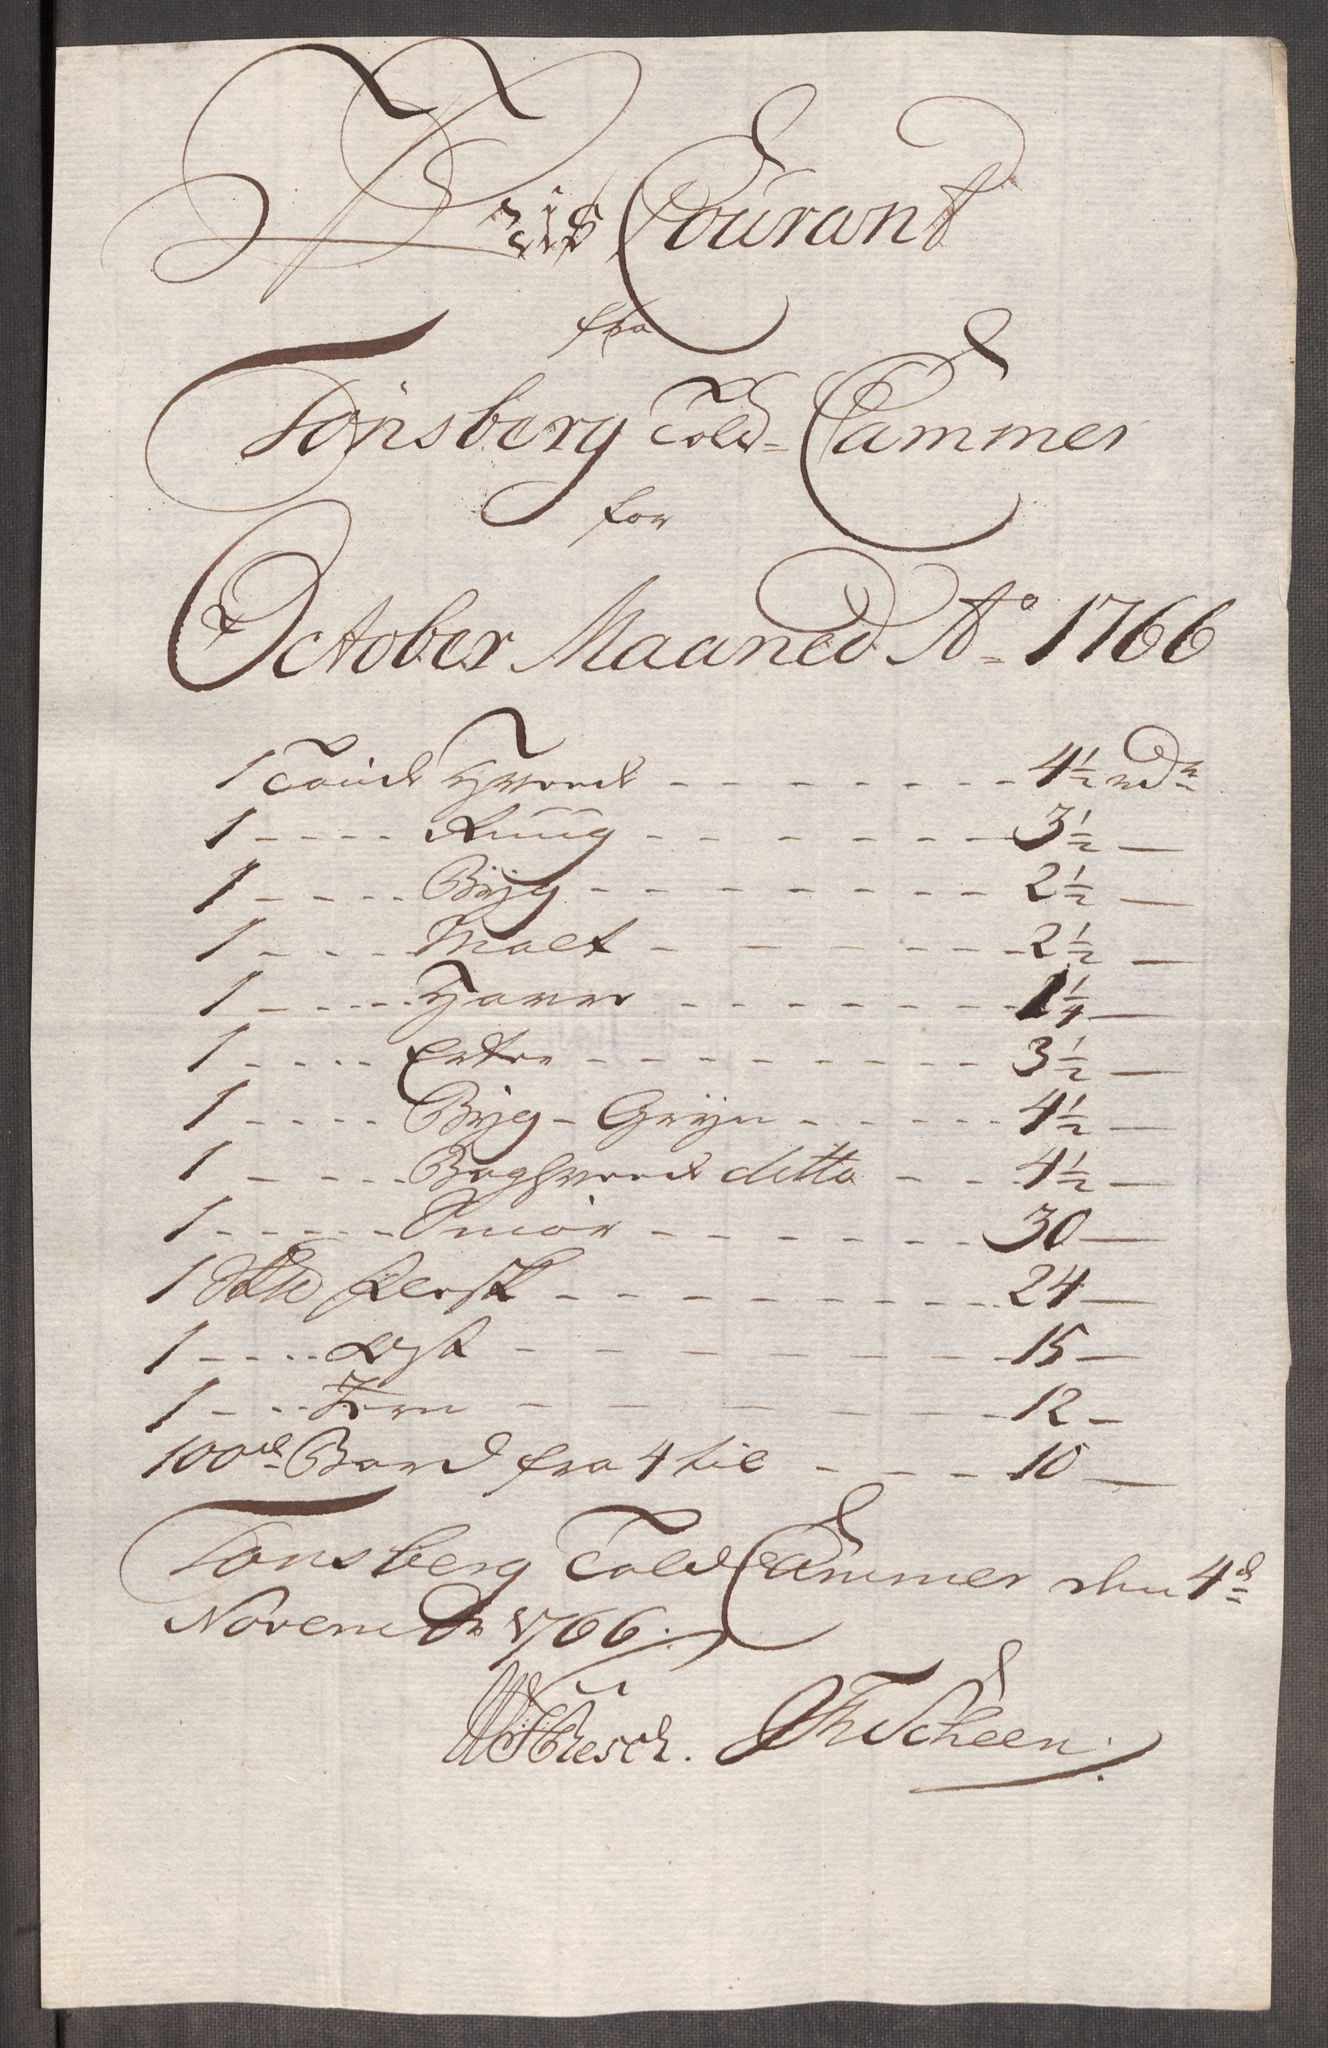 Priis Courant
fra
Tönsberg Told-Cammer
for
October Maaned Ao 1766
1 Tønde Hvede - - - - - - - - 4½ rdr
1 - - - - Ruug - - - - - - - - 3½ —
1 - - - - Byg - - - - - - - - 2½ —
1 - - - - Malt - - - - - - - 2½ —
1 - - - - Havre - - - - - - - 1¼ —
1 - - - - Erter - - - - - - - 3½ —
1 - - - - Byg-Gryn - - - - - - 4½ —
1 - - - - Boghvede ditto - - - 4½ —
1 - - - - Smör - - - - - - - 30 —
1 Flesk - - - - - - - - 24 —
1 - - - - - - - - - - - 15 —
1 - - - Jern - - - - - - - 12 —
100de Bord fra 4 til - - - - 10 —
Tønsberg Told Cammer den 4de
Novembr 1766.
Scheen.